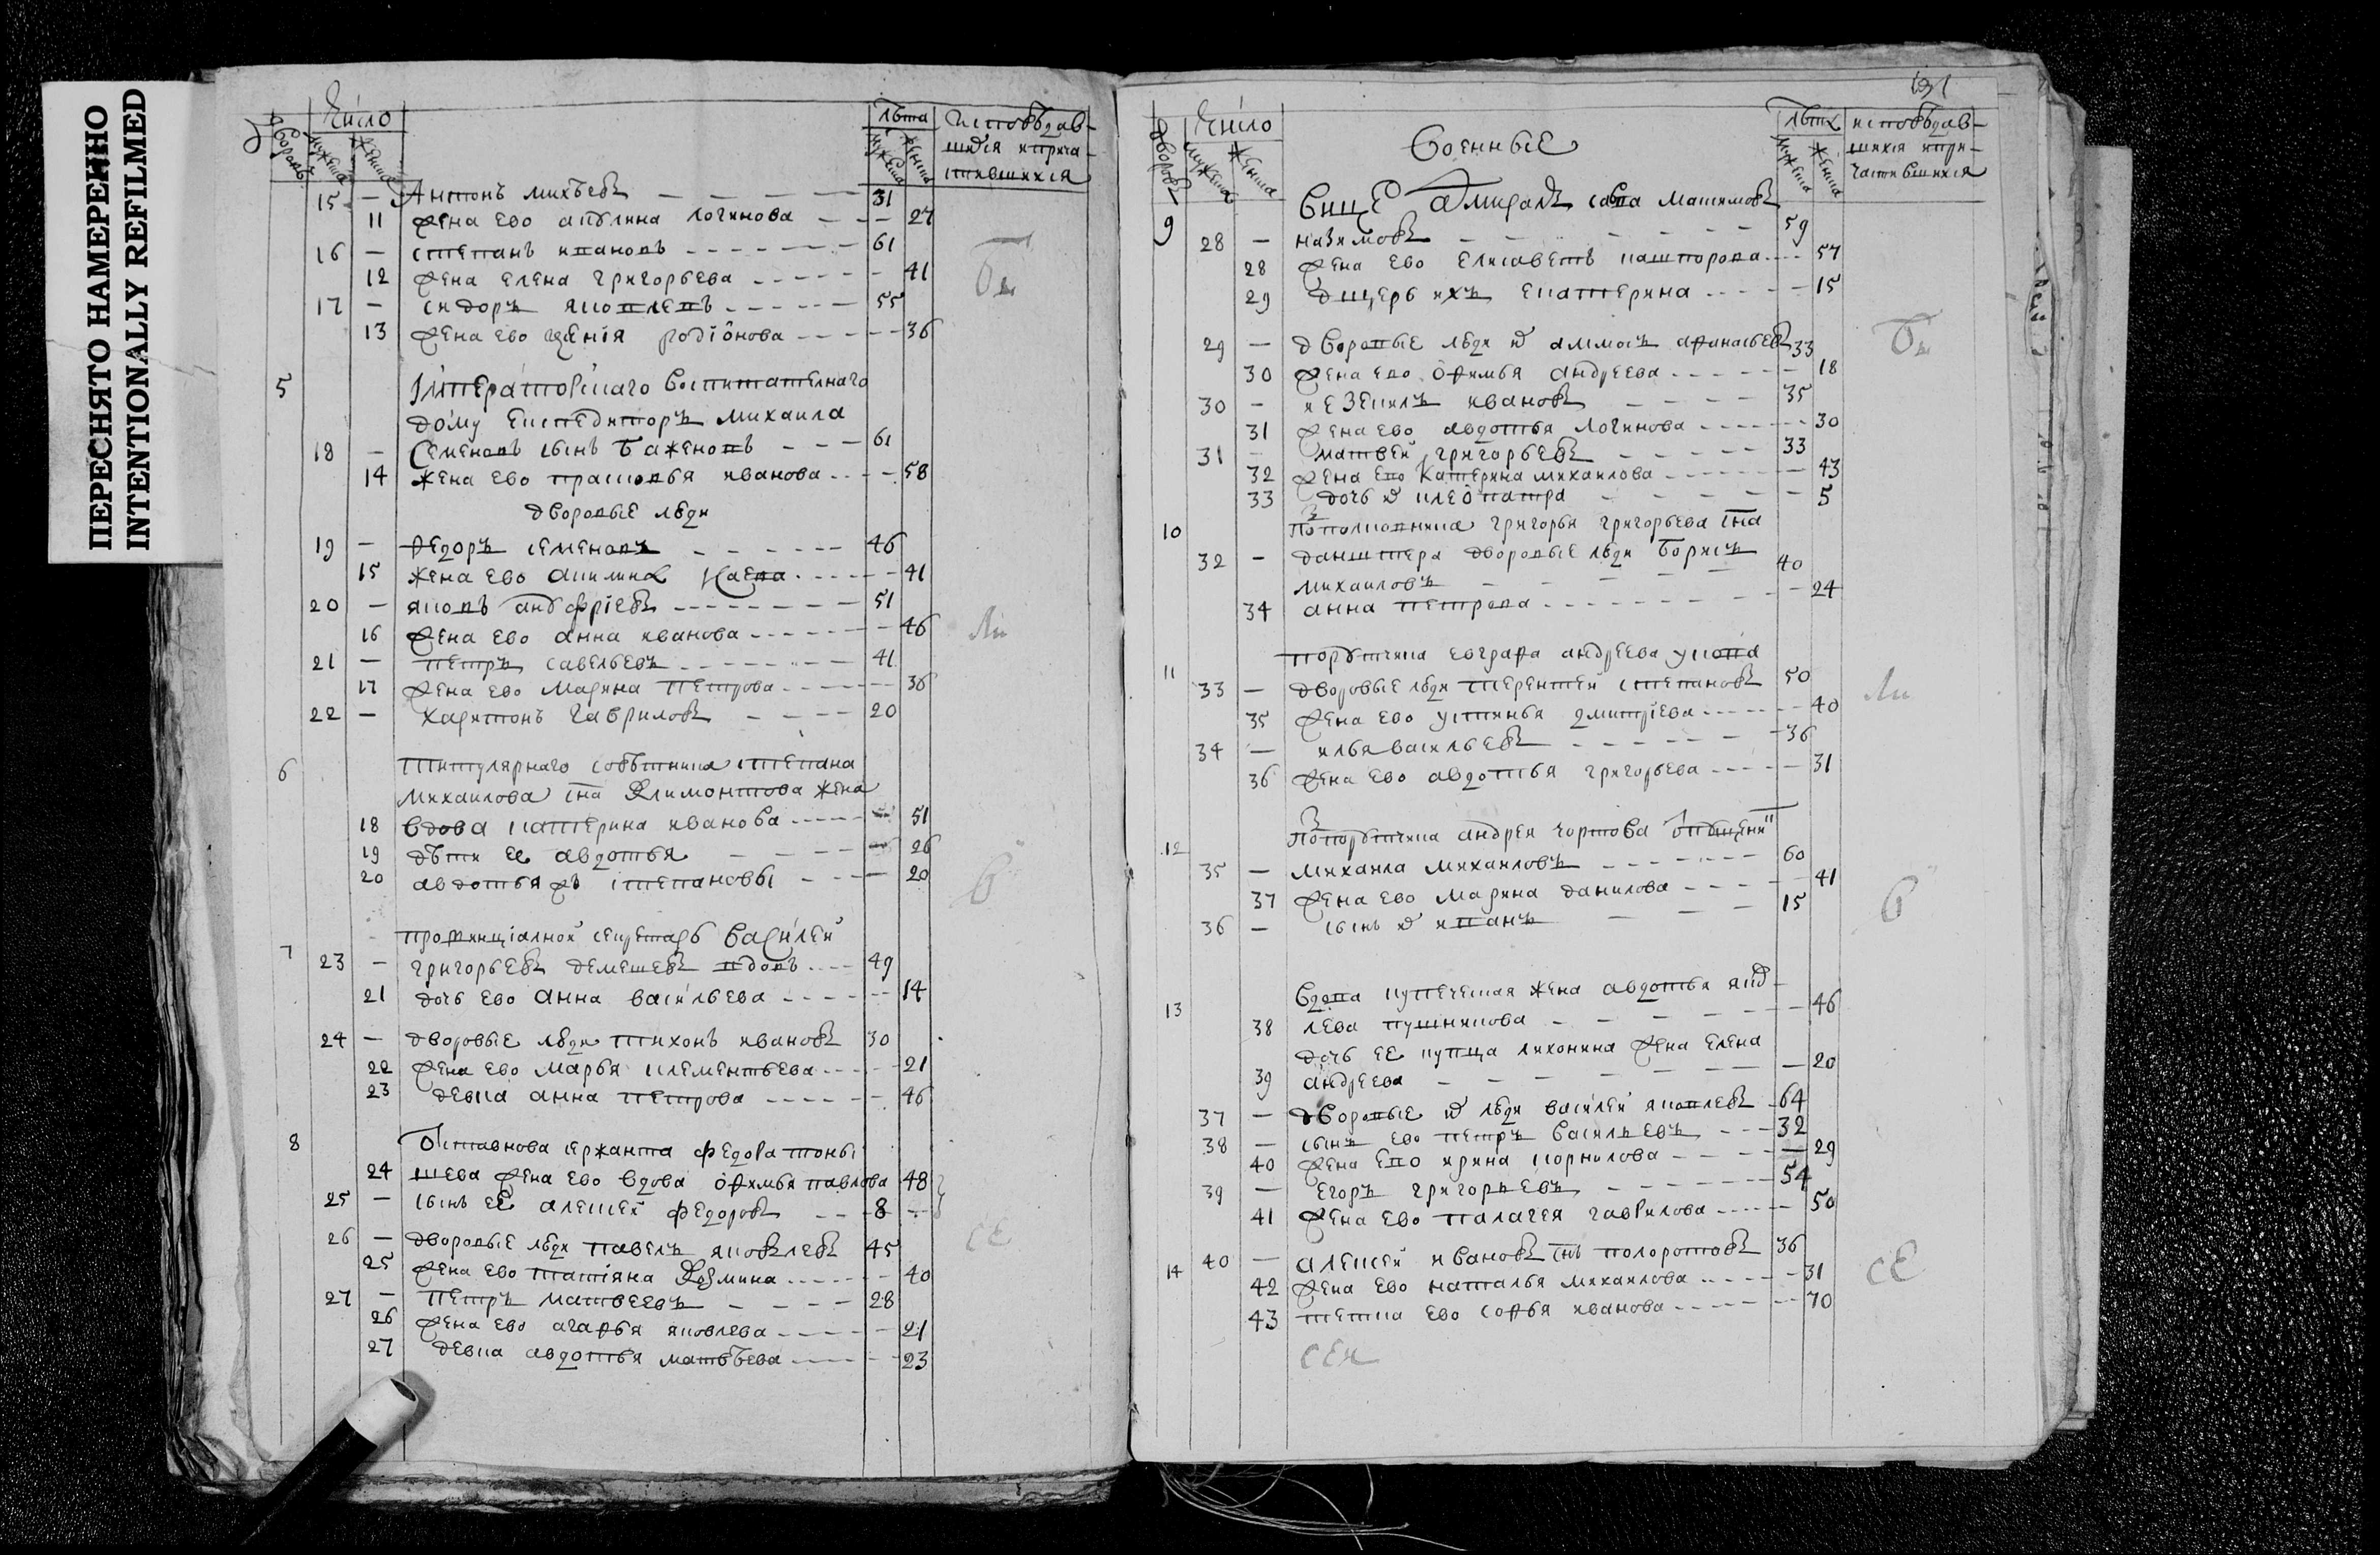 ПЕРЕСНЯТО НАМЕРЕННО
INTENTIONALLY REFILMED
Число лѣта исповѣдав-
дворовъ мужеска женска мужеска женска шихся и прича-
стившихся
15 — Антонъ михѣевъ — 31
11 жена ево акулина логинова — 27
16 — степанъ ивановъ — 61
12 жена елена григорьева — 41
17 — сидоръ яковлевъ — 55
13 жена ево ксения родионова — 36
5 Императорскаго воспитателнаго
дому експедиторъ михаила
18 — Семеновъ сынъ Баженовъ — 61
14 жена ево прасковья иванова — 58
дворовые люди
19 — федоръ семеновъ — 46
15 жена ево акилина — 41
20 — яковъ — 51
16 жена ево анна иванова — 46
21 — петръ савельевъ — 41
17 жена ево марина петрова — 36
22 — харитонъ гаврилов — 20
6 титулярнаго совѣтника степана
михаилова сна Климонтова жена
18 вдова катерина иванова — 51
19 дѣти ее авдотья — 26
20 авдотья ж степановы — 20
7 провинциалной секретарь василей
23 — григорьевъ демешевъ вдовъ — 49
21 дочь ево анна васильева — 14
24 — дворовые люди тихонъ ивановъ 30
22 жена ево марья клементьева — 21
23 девка анна петрова — 46
8 Отставнова сержанта федора
24 шева жена ево вдова офимья павлова 48
25 — сынъ ее алексей федоровъ — 8
26 — дворовые люди павелъ яковлевъ 45
25 жена ево татияна Козмина — 40
27 — петръ матвеевъ — 28
26 жена ево агафья яковлева — 21
27 девка авдотья матвѣева — 23
131
Число лѣта исповѣдав-
дворовъ мужеска женска Военные мужеска женска шихся и при-
частившихся
9 вице Адмиралъ сава максимовъ
28 — назимовъ — 59
28 жена ево елисаветъ — 57
29 дщерь ихъ екатерина — 15
29 — дворовые люди ж аммосъ афанасьевъ 33
30 жена ево офимья андреева — 18
30 — иезекилъ ивановъ — 35
31 жена ево авдотья логинова — 30
31 — матвей григорьевъ — 33
32 жена ево катерина михаилова — 43
33 дочь ж клеопатра — 5
10 Потполковника григорья григорьева сна
32 — дворовые люди борисъ
михаиловъ — 40
34 анна петрова — 24
11 порутчика евграфа андреева
33 — дворовые люди терентей степановъ 50
35 жена ево устинья дмитриева — 40
34 — илья васильевъ — 36
36 жена ево авдотья григорьева — 31
12 Потпорутчика андрея чортова
35 — михаила михаиловъ — 60
37 жена ево марина данилова — 41
36 — сынъ ж иванъ — 15
13 вдова купеческая жена авдотья яков-
38 лева пушникова — 46
дочь ее купца лихонина жена елена
39 андреева — 20
37 — дворовые ж люди василей яковлевъ 64
38 — сынъ ево петръ васильевъ — 32
40 жена ево ирина корнилова — 29
39 — егоръ григорьевъ — 54
41 жена ево палагея гаврилова — 50
14 40 — алексей ивановъ снъ полоротовъ 36
42 жена ево наталья михаилова — 31
43 тетка ево софья иванова — 70